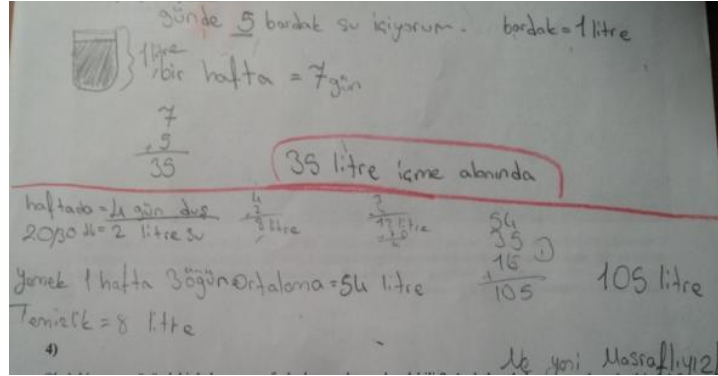 günde 5 bardak su içiyorum. bardak = 1 litre
1 litre
bir hafta = 7 gün
7
.5
35
35 litre içme alanında
haftada = 4 gün duş
20/30 dk = 2 litre su
4
2
8 litre
54
35
16
105
105 litre
Yemek 1 hafta 3 öğün Ortalama = 54 litre
Temizlik = 8 litre
4)
Ne yani Masraflıyız!